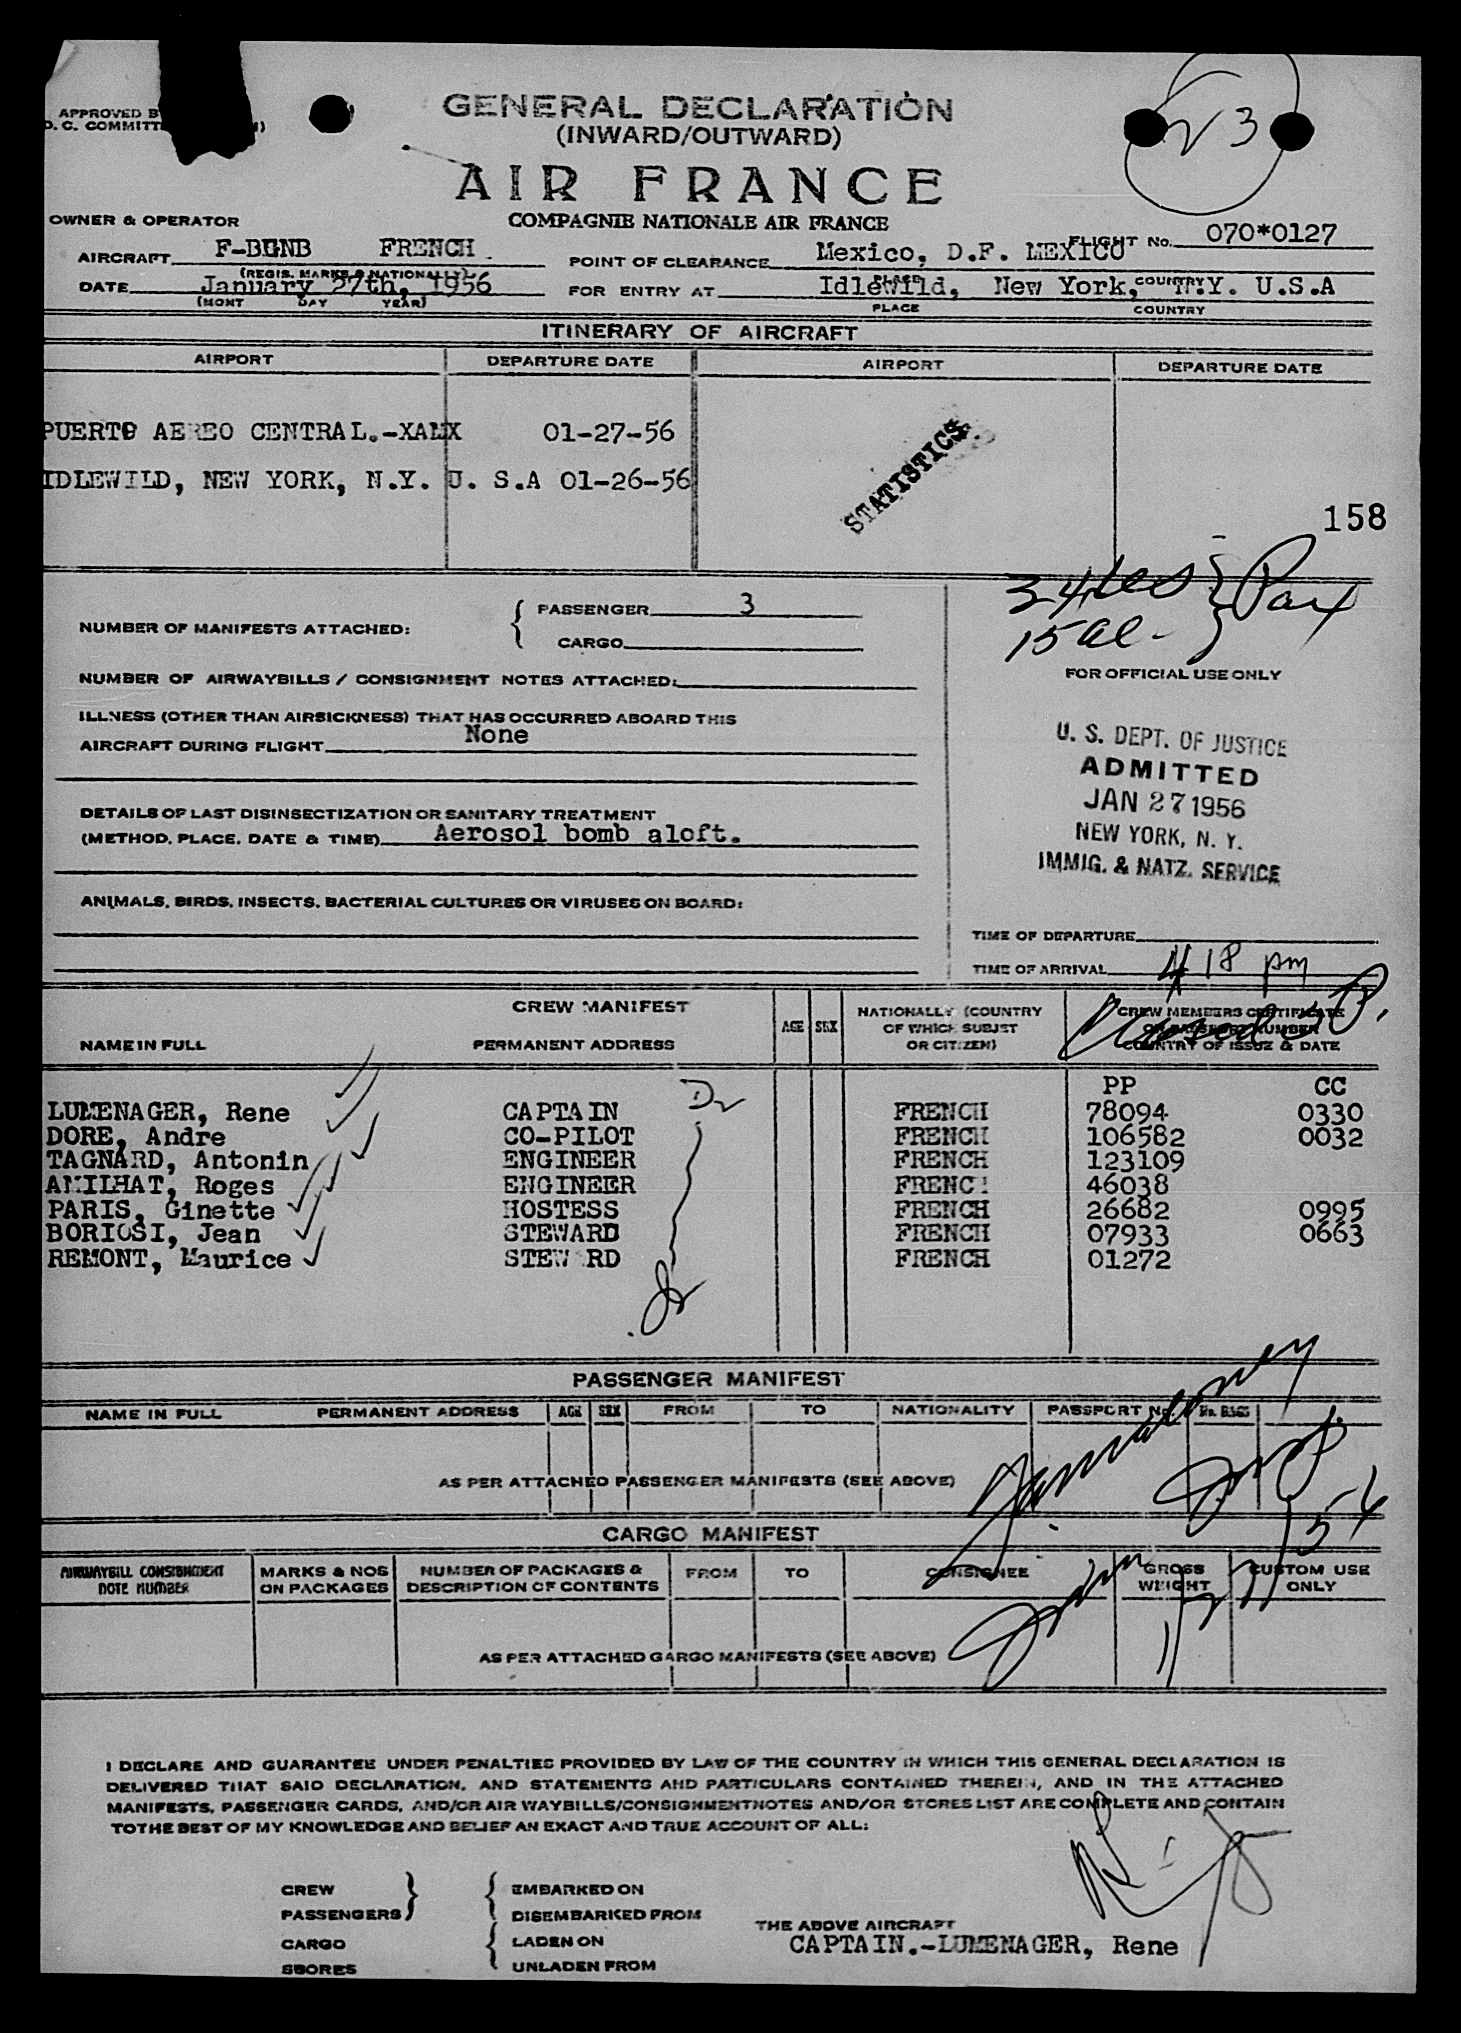 GENERAL DECLARATION
(INWARD/OUTWARD)
AIR FRANCE
COMPAGNIE NATIONALE AIR FRANCE
APPROVED B
D. C. COMMITT
23
OWNER & OPERATOR
AIRCRAFT F-BGNB FRENCH.
(REGIS. MARKS & NATIONALLY)
FLIGHT No. 070*0127
POINT OF CLEARANCE Mexico, D.F. MEXICO
PLACE COUNTRY
DATE January 27th, 1956
(MONT DAY YEAR)
FOR ENTRY AT Idlewild, New York, N.Y. U.S.A
PLACE COUNTRY
ITINERARY OF AIRCRAFT
AIRPORT DEPARTURE DATE AIRPORT DEPARTURE DATE
PUERTO AEREO CENTRAL.-XALX 01-27-56
IDLEWILD, NEW YORK, N.Y. U. S.A 01-26-56
STATISTICS
158
34 15 al- } Pax
NUMBER OF MANIFESTS ATTACHED: { PASSENGER 3
CARGO
NUMBER OF AIRWAYBILLS / CONSIGNMENT NOTES ATTACHED:
ILLNESS (OTHER THAN AIRSICKNESS) THAT HAS OCCURRED ABOARD THIS
AIRCRAFT DURING FLIGHT None
DETAILS OF LAST DISINSECTIZATION OR SANITARY TREATMENT
(METHOD, PLACE, DATE & TIME) Aerosol bomb aloft.
ANIMALS, BIRDS, INSECTS, BACTERIAL CULTURES OR VIRUSES ON BOARD:
FOR OFFICIAL USE ONLY
U. S. DEPT. OF JUSTICE
ADMITTED
JAN 27 1956
NEW YORK, N. Y.
IMMIG. & NATZ. SERVICE
TIME OF DEPARTURE
TIME OF ARRIVAL 4 18 pm
CREW MANIFEST
NAME IN FULL PERMANENT ADDRESS AGE SEX NATIONALLY (COUNTRY
OF WHICH SUBJST
OR CITIZEN)
CREW MEMBERS CERTIFICATE
OR PASSPORT NUMBER
COUNTRY OF ISSUE & DATE
PP CC
LUMENAGER, Rene CAPTAIN FRENCH 78094 0330
DORE, Andre CO-PILOT FRENCH 106582 0032
TAGNARD, Antonin ENGINEER FRENCH 123109
AMILHAT, Roges ENGINEER FRENCH 46038
PARIS, Ginette HOSTESS FRENCH 26682 0995
BORIOSI, Jean STEWARD FRENCH 07933 0663
REMONT, Maurice STEWARD FRENCH 01272
PASSENGER MANIFEST
NAME IN FULL PERMANENT ADDRESS AGE SEX FROM TO NATIONALITY PASSPORT No. No. BAGS
AS PER ATTACHED PASSENGER MANIFESTS (SEE ABOVE)
CARGO MANIFEST
AIRWAYBILL CONSIGNMENT
NOTE NUMBER
MARKS & NOS
ON PACKAGES
NUMBER OF PACKAGES &
DESCRIPTION OF CONTENTS
FROM TO CONSIGNEE GROSS
WEIGHT
CUSTOM USE
ONLY
AS PER ATTACHED GARGO MANIFESTS (SEE ABOVE)
I DECLARE AND GUARANTEE UNDER PENALTIES PROVIDED BY LAW OF THE COUNTRY IN WHICH THIS GENERAL DECLARATION IS
DELIVERED THAT SAID DECLARATION, AND STATEMENTS AND PARTICULARS CONTAINED THEREIN, AND IN THE ATTACHED
MANIFESTS, PASSENGER CARDS, AND/OR AIR WAYBILLS/CONSIGNMENTNOTES AND/OR STORES LIST ARE COMPLETE AND CONTAIN
TOTHE BEST OF MY KNOWLEDGE AND BELIEF AN EXACT AND TRUE ACCOUNT OF ALL:
CREW
PASSENGERS
CARGO
SBORES
EMBARKED ON
DISEMBARKED FROM
LADEN ON
UNLADEN FROM
THE ABOVE AIRCRAFT
CAPTAIN.-LUMENAGER, Rene